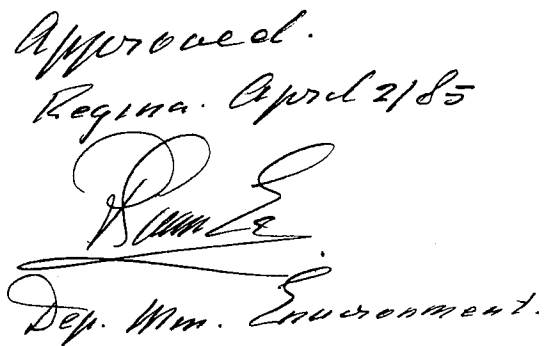 Approved.
Regina. April 2/85
Dep. Min. Environment.